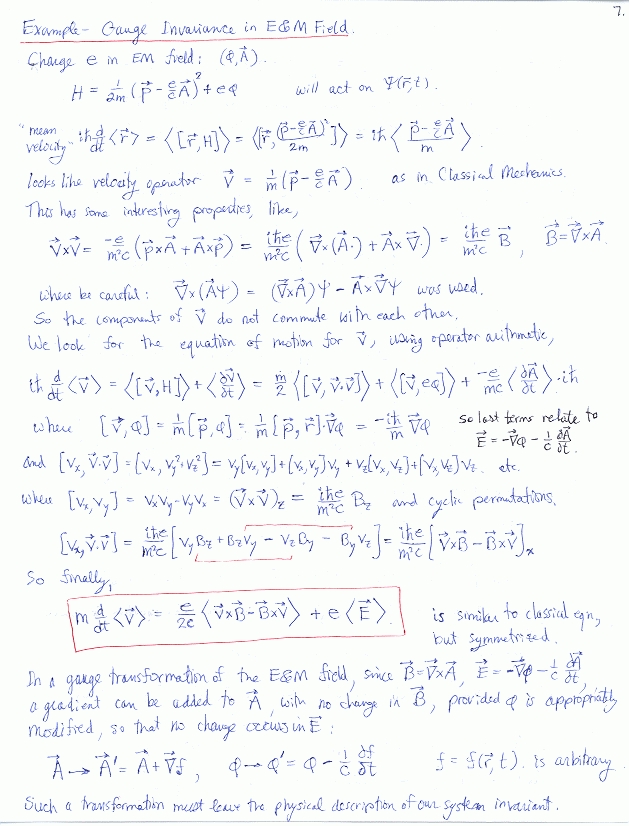 7.
Example - Gauge Invariance in E&M Field.
Charge e in EM field: (φ, A⃗).
H = 1/2m (p⃗ - e/c A⃗)² + eφ will act on Ψ(r⃗,t).
"mean velocity" iħ d/dt <r⃗> = <[r⃗,H]> = <[r⃗, (p⃗ - e/c A⃗)²/2m]> = iħ <(p⃗ - e/c A⃗)/m>
looks like velocity operator v⃗ = 1/m (p⃗ - e/c A⃗) as in Classical Mechanics.
This has some interesting properties, like,
v⃗×v⃗ = -e/m²c (p⃗×A⃗ + A⃗×p⃗) = iħe/m²c (∇⃗×(A⃗·) + A⃗×∇⃗·) = iħe/m²c B⃗, B⃗=∇⃗×A⃗.
where be careful: ∇⃗×(A⃗Ψ) = (∇⃗×A⃗)Ψ - A⃗×∇⃗Ψ was used.
So the components of v⃗ do not commute with each other.
We look for the equation of motion for v⃗, using operator arithmetic,
iħ d/dt <v⃗> = <[v⃗,H]> + <∂v⃗/∂t> = m/2 <[v⃗, v⃗·v⃗]> + <[v⃗,eφ]> + -e/mc <∂A⃗/∂t>·iħ
where [v⃗,φ] = 1/m [p⃗,φ] = 1/m [p⃗,r⃗]·∇⃗φ = -iħ/m ∇⃗φ so last terms relate to
E⃗ = -∇⃗φ - 1/c ∂A⃗/∂t.
and [Vx, v⃗·v⃗] = [Vx, Vy²+Vz²] = Vy[Vx,Vy]+[Vx,Vy]Vy + Vz[Vx,Vz]+[Vx,Vz]Vz. etc.
where [Vx,Vy] = VxVy - VyVx = (v⃗×v⃗)z = iħe/m²c Bz and cyclic permutations.
[Vx, v⃗·v⃗] = iħe/m²c [VyBz + BzVy - VzBy - ByVz] = iħe/m²c [v⃗×B⃗ - B⃗×v⃗]x
So finally,
m d/dt <v⃗> = e/2c <v⃗×B⃗ - B⃗×v⃗> + e<E⃗>. is similar to classical eqn,
but symmetrized.
In a gauge transformation of the E&M field, since B⃗=∇⃗×A⃗, E⃗ = -∇⃗φ - 1/c ∂A⃗/∂t,
a gradient can be added to A⃗, with no change in B⃗, provided φ is appropriately
modified, so that no change occurs in E⃗:
A⃗ → A⃗' = A⃗ + ∇⃗f, φ → φ' = φ - 1/c ∂f/∂t f = f(r⃗,t). is arbitrary
Such a transformation must leave the physical description of our system invariant.